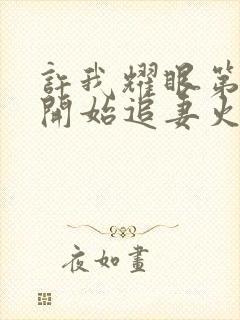 許我耀眼第
開始追妻火
夜如畫